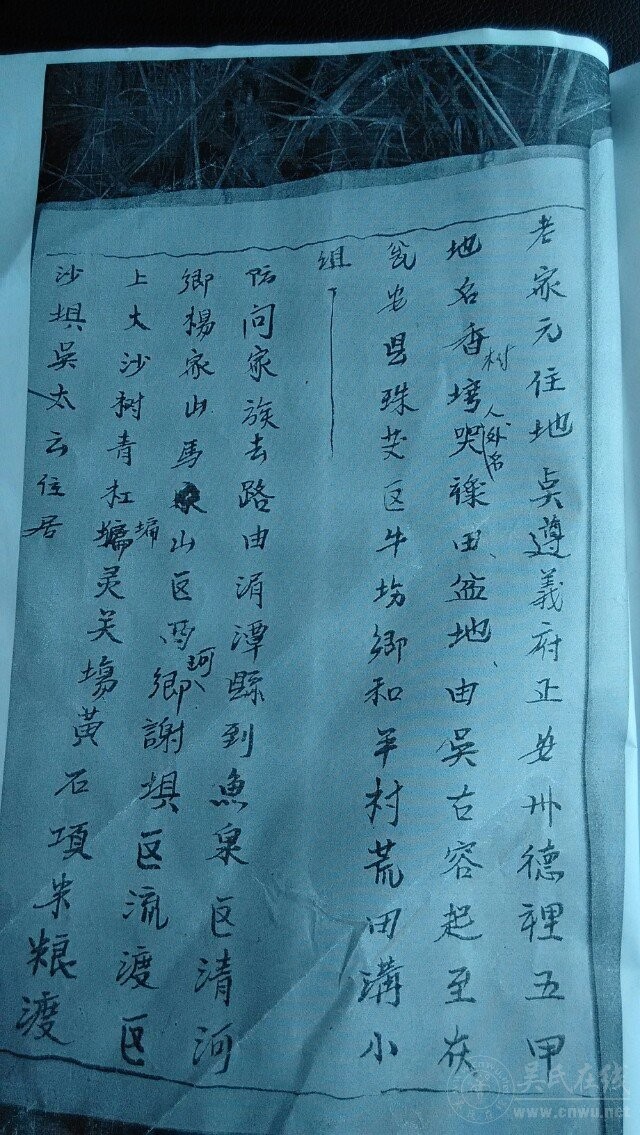 老家元住地贞遵義府正安州德裡五甲
地名香村塆哭人外名祿田、盆地、由吴古容起至在
瓮安县珠芷区牛场鄉和平村荒田溝小
组
防问家族去路由湄潭縣到魚泉区清河
鄉楊家山馬山区两河鄉謝埧区流渡区
上大沙树青杠塥灵关場黄石項米粮渡
沙埧吴太云住居
吴氏在线
www.cnwu.net